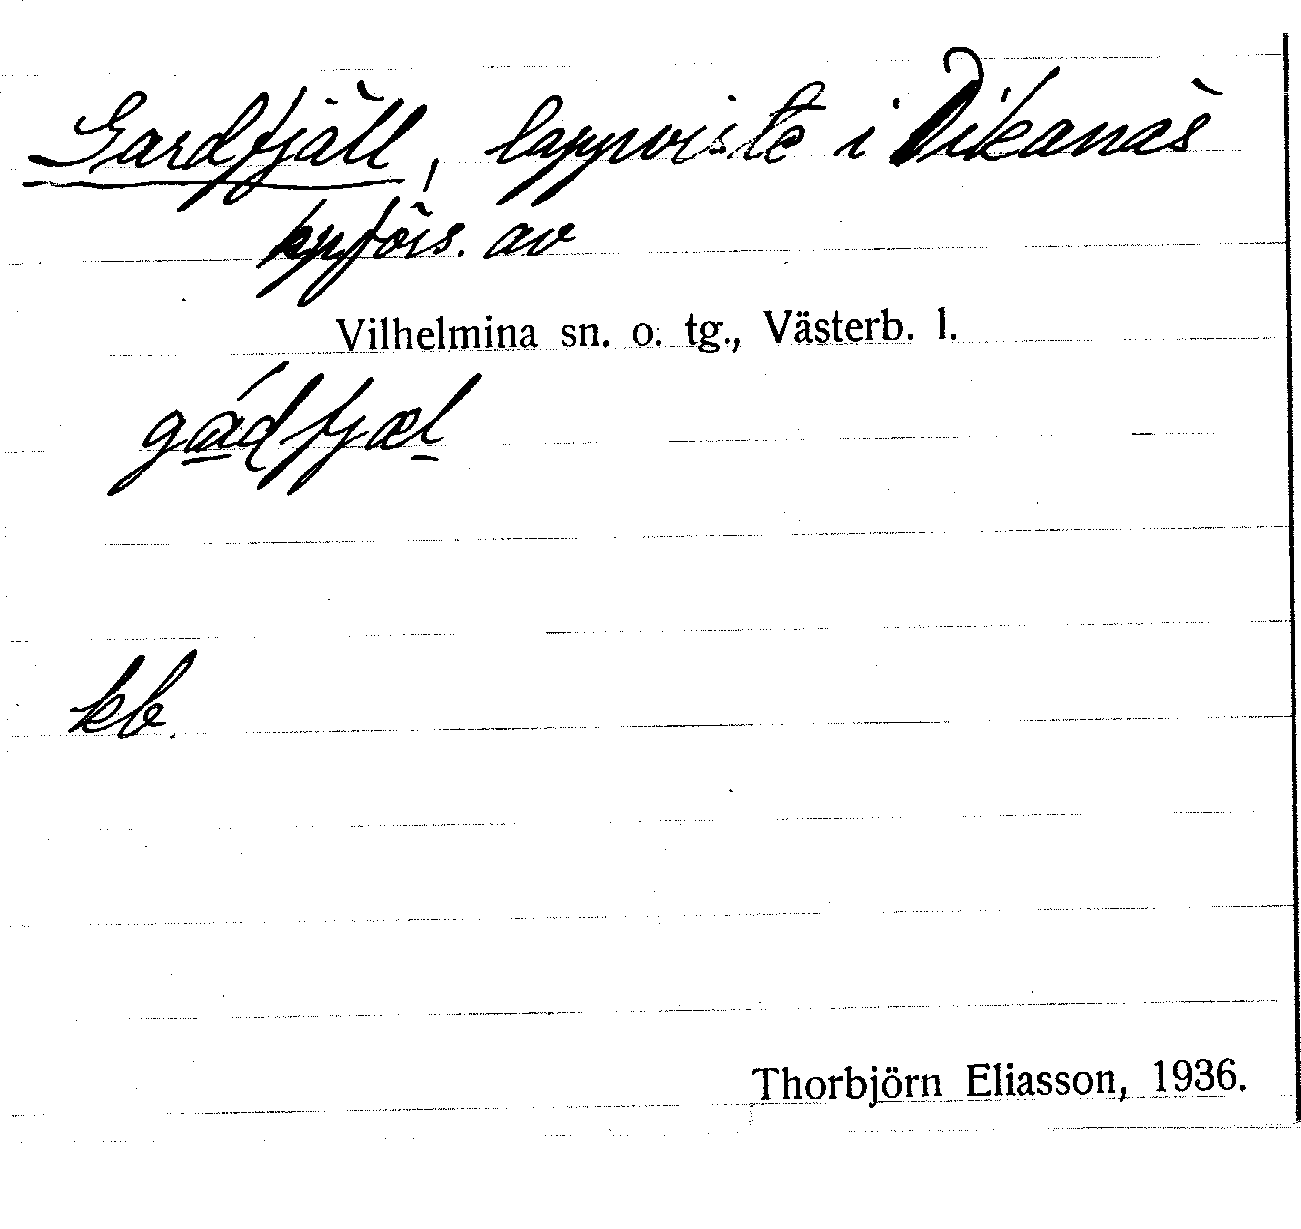 Gardfjäll, lappviste i Dikanäs
kpförs. av
Vilhelmina sn. o. tg., Västerb. l.
gádfjæl
kb.
Thorbjörn Eliasson, 1936.